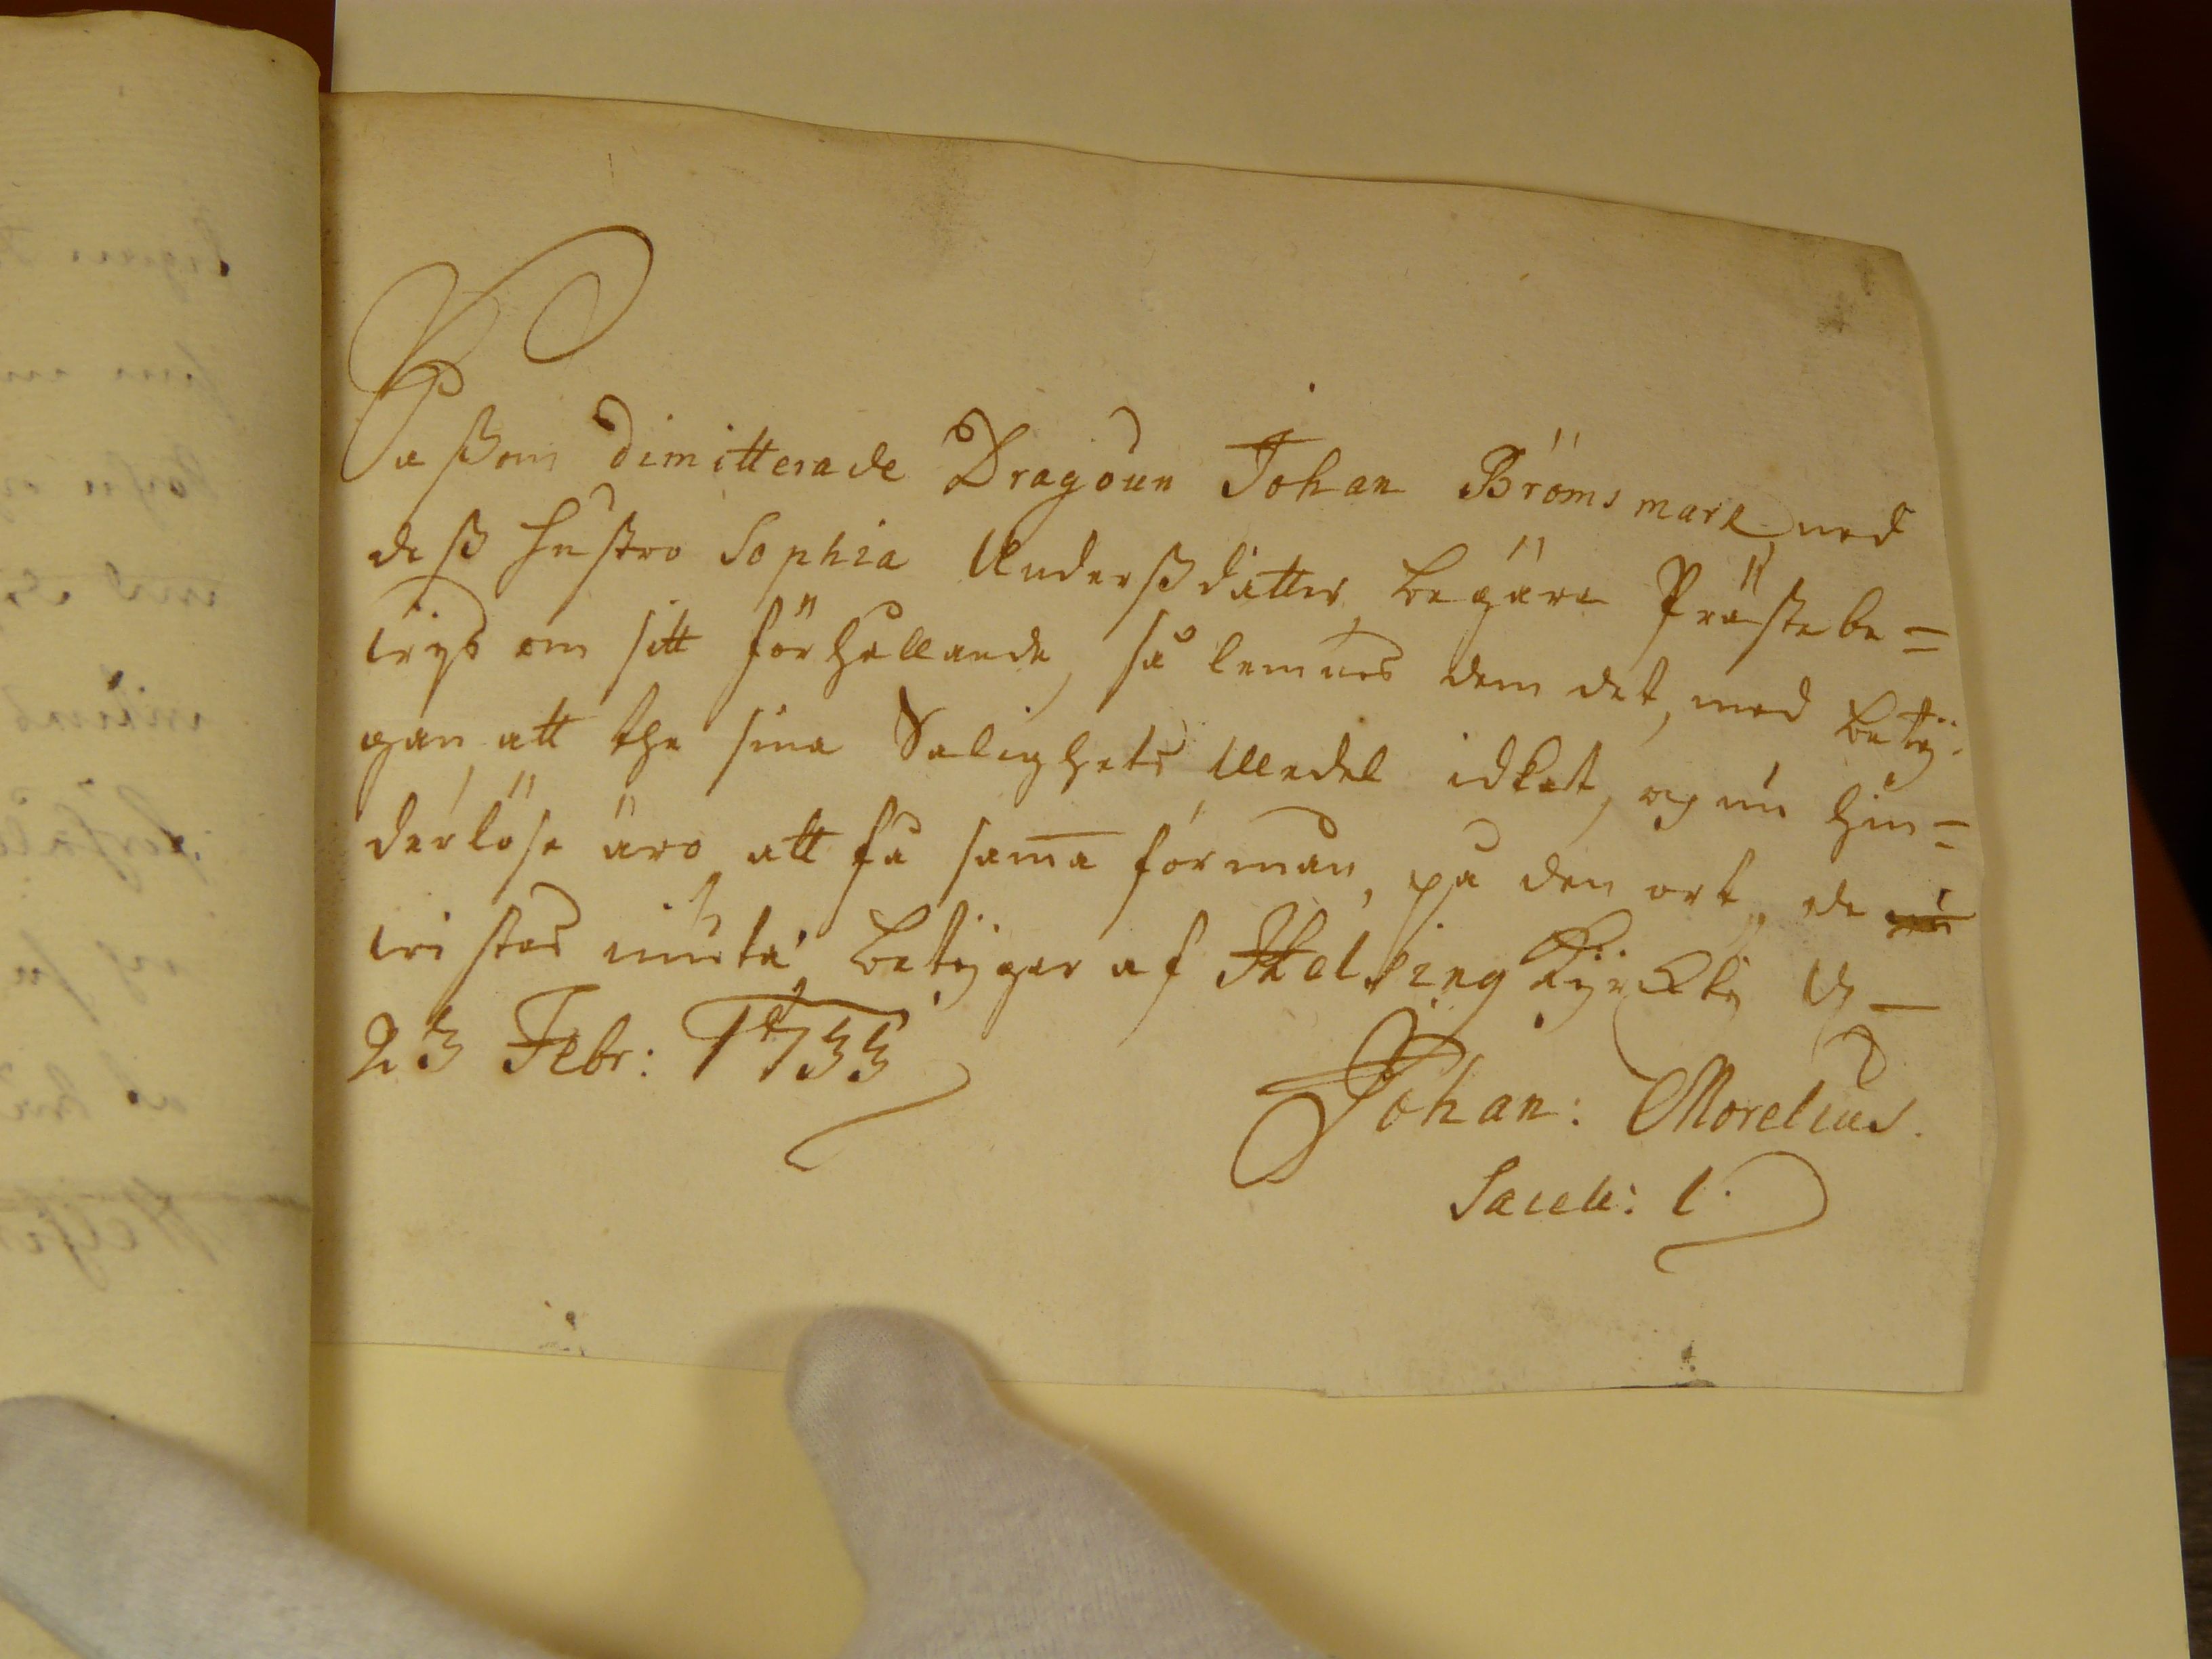 Såßom dimitterade Dragoun Johan Brömsmark med
deß hustro Sophia Andersßdatter, begära Prästebe=
wijs om sitt förhållande, så lemnas dem det, med betÿ-
gan att the sina Salighets Medel idkat, og nu hin=
derlöse äro att få sama förmån, på den ort, de nu
wistas måtå betÿgar af Helsing Kÿrckbÿ d
23 Febr: 1733
Johan: Morelius.
Sacell: l.